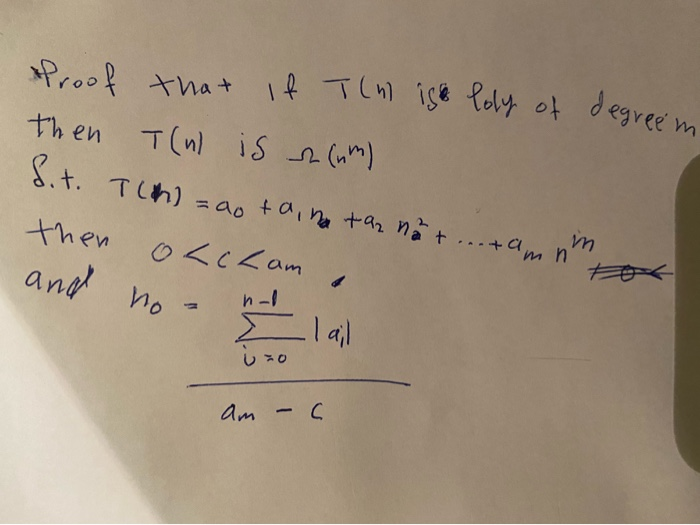 Proof that if T(n) is Poly of degree m
then T(n) is Ω(n^m)
S.t. T(n) = a₀ + a₁n + a₂n² + ... + aₘn^m
then 0 < c < aₘ
and n₀ =
n-1
Σ |aᵢ|
i=0
aₘ - c